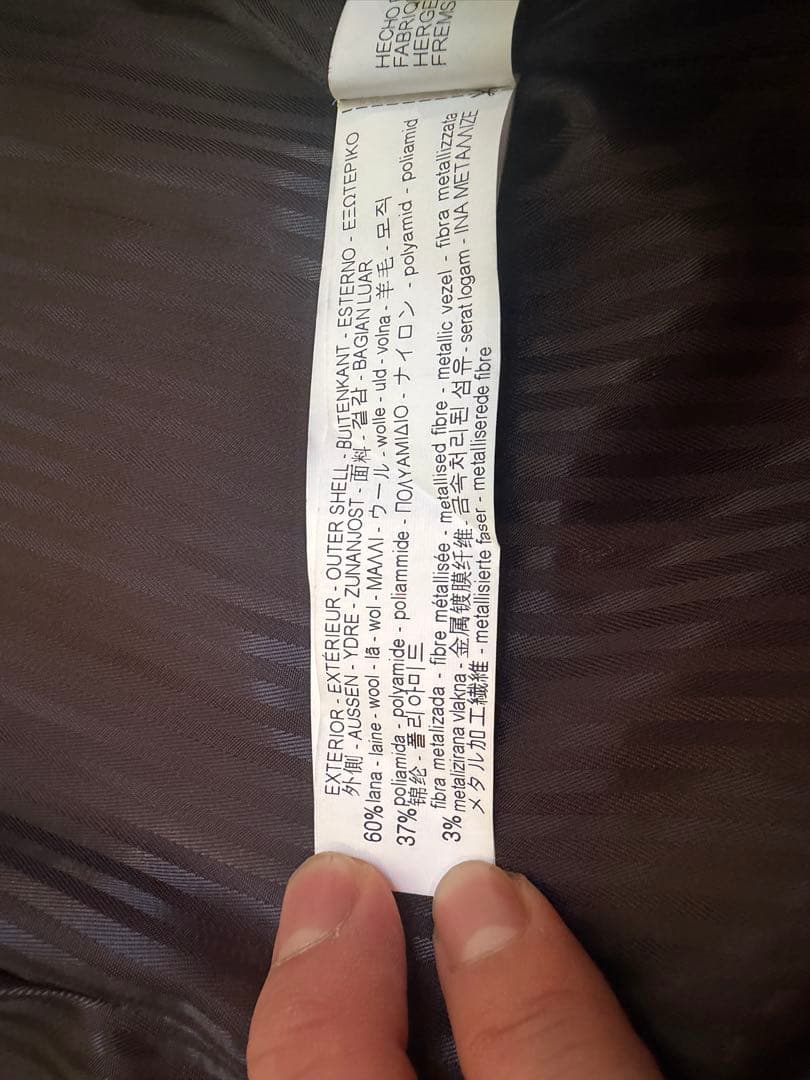 HECHO
FABRIQ
HERGE
FREMS
EXTERIOR - EXTÉRIEUR - OUTER SHELL - BUITENKANT - ESTERNO - ΕΞΩΤΕΡΙΚΟ
外側 - AUSSEN - YDRE - ZUNANJOST - 面料 - 겉감 - BAGIAN LUAR
60% lana - laine - wool - lã - wol - ΜΑΛΛΙ - ウール - wolle - uld - volna - 羊毛 - 모직
37% poliamida - polyamide - poliammide - ΠΟΛΥΑΜΙΔΙΟ - ナイロン - polyamid - poliamid
锦纶 - 폴리아미드
fibra metalizada - fibre métallisée - metallised fibre - metallic vezel - fibra metallizzata
3% metalizirana vlakna - 金属镀膜纤维 - 금속처리된 섬유 - serat logam - ΙΝΑ ΜΕΤΑΛΛΙΖΕ
メタル加工繊維 - metallisierte faser - metalliserede fibre